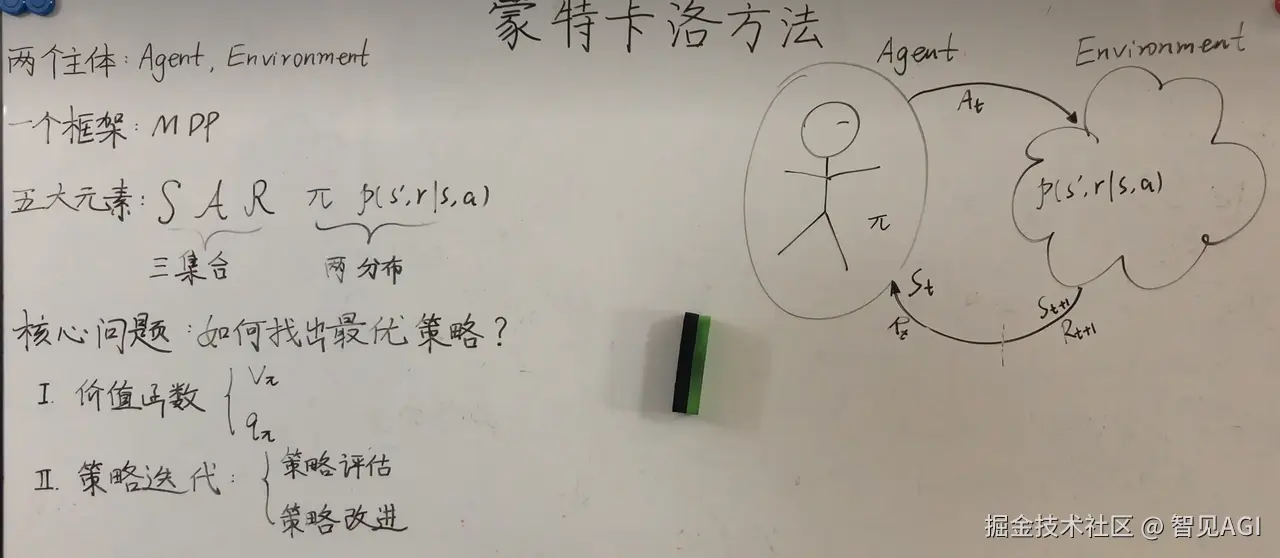 蒙特卡洛方法
两个主体: Agent, Environment
一个框架: MDP
五大元素: S A R π p(s',r|s,a)
三集合 两分布
核心问题:如何找出最优策略?
I. 价值函数 { Vπ
qπ
II. 策略迭代: { 策略评估
策略改进
Agent Environment
At
p(s',r|s,a)
π
St
St+1
Rt+1
掘金技术社区 @ 智见AGI